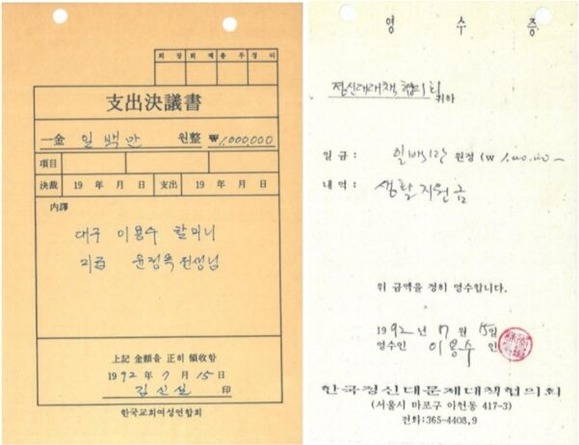 회장 회계 총무 경리
支出決議書
一金 일백만 원整 ₩1,000,000
項目
決裁 19 年 月 日 支出 19 年 月 日
内譯
대구 이용수 할머니
지급 윤정옥 선생님
上記 金額을 正히 領收함
1992年 7月 15日
김신실 印
한국교회여성연합회
영수증
정신대대책협의회 귀하
일금 : 일백만 원정 (₩ 1,000,000-
내역 : 생활지원금
위 금액을 정히 영수합니다.
1992년 7월 15일
영수인 이용수 인
한국정신대문제대책협의회
(서울시 마포구 아현동 417-3)
전화:365-4408,9